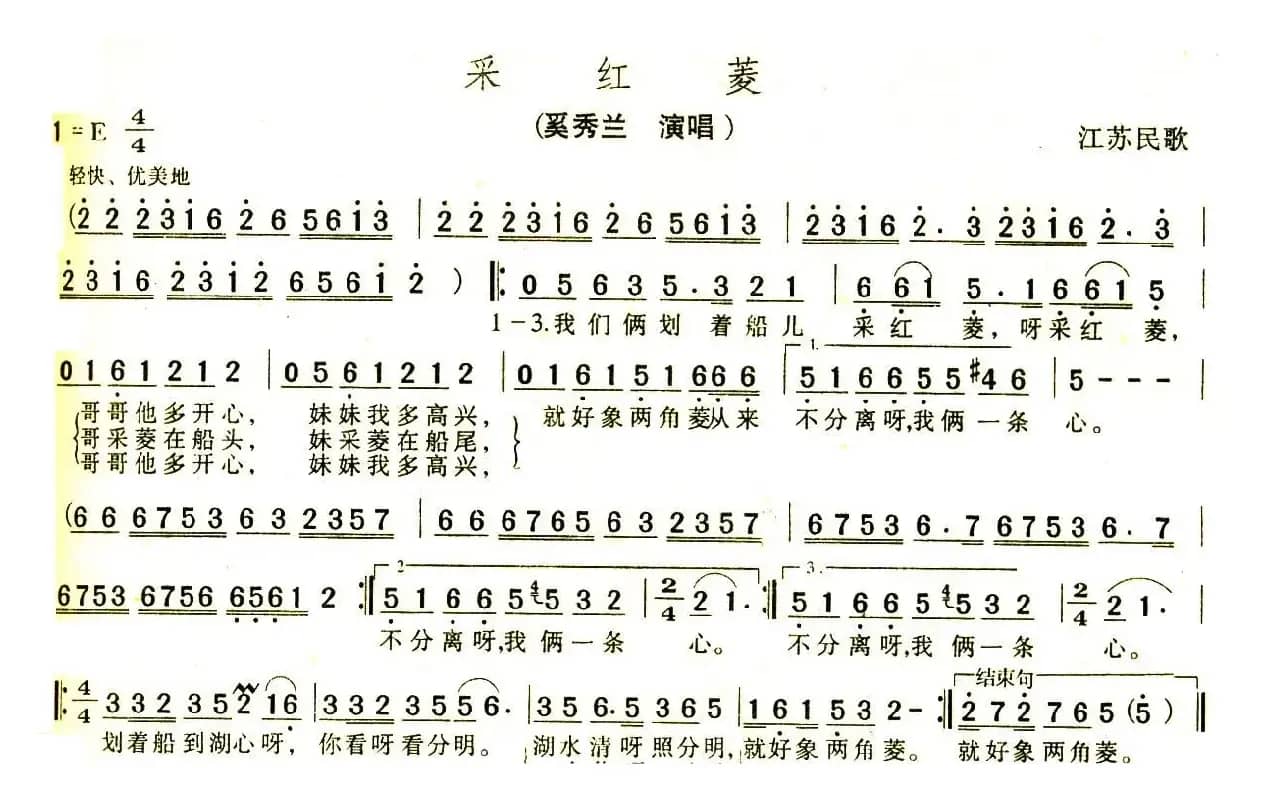 采 红 菱
(奚秀兰 演唱)
1=E 4/4
江苏民歌
轻快、优美地
(2 2 2316 26 5613 | 2 2 2316 26 5613 | 2316 2·3 2316 2·3 |
2316 2312 6561 2 ) ‖: 05635·321 | 661 5·1661 5
1-3.我们俩划着船儿 采红 菱，呀采红 菱，
1.
0161212 | 0561212 | 016151666 | 516655#46 | 5---
哥哥他多开心， 妹妹我多高兴， 就好象两角菱从来 不分离呀,我俩一条 心。
哥采菱在船头， 妹采菱在船尾，
哥哥他多开心， 妹妹我多高兴，
(66 6753 63 2357 | 66 6765 63 2357 | 6753 6·7 6753 6·7 |
6753 6756 6561 2 :‖ 2 516654532 | 2/4 21· :‖ 3. 516654532 | 2/4 21· |
不分离呀,我俩一条 心。 不分离呀,我俩一条 心。
结束句
‖: 4/4 332 352 16 | 332 355 6· | 356·5 365 | 161532- :‖ 272 765 (5) ‖
划着船到湖心呀， 你看呀看分明。 湖水清呀照分明,就好象两角菱。 就好象两角菱。